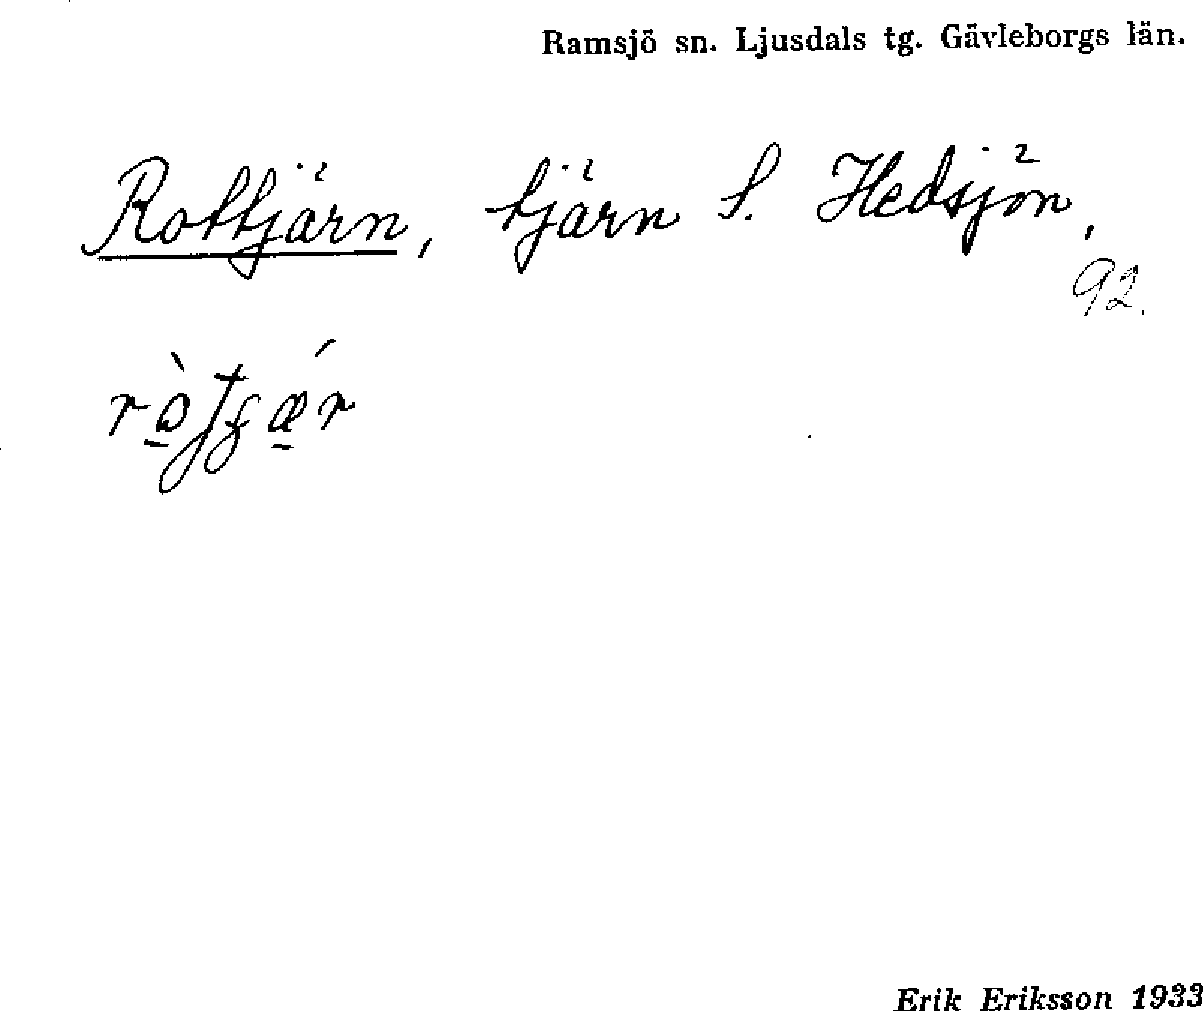 Ramsjö sn. Ljusdals tg. Gävleborgs län.
Rottjärn, tjärn S. Hedsjön,
92.
Erik Eriksson 1933